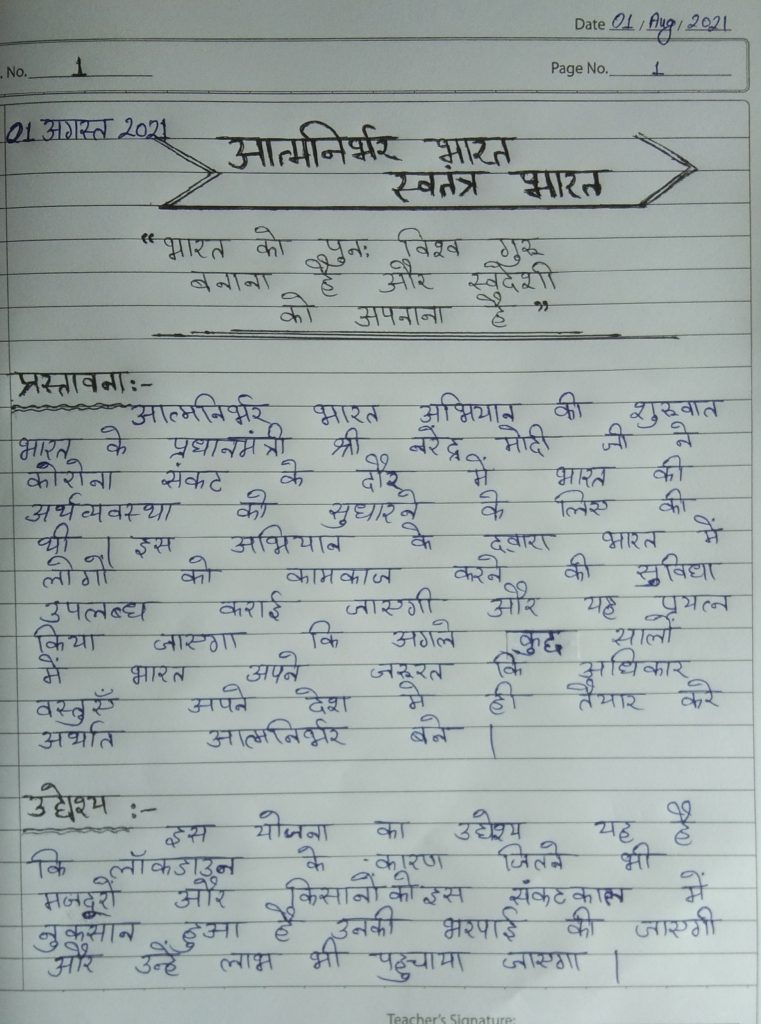 Date 01 / Aug / 2021
. No. 1 Page No. 1
01 अगस्त 2021
आत्मनिर्भर भारत
स्वतंत्र भारत
“भारत को पुनः विश्व गुरू
बनाना है और स्वदेशी
को अपनाना है”
प्रस्तावना:-
आत्मनिर्भर भारत अभियान की शुरुवात
भारत के प्रधानमंत्री श्री नरेंद्र मोदी जी ने
कोरोना संकट के दौर में भारत की
अर्थव्यवस्था को सुधारने के लिए की
थी | इस अभियान के द्वारा भारत में
लोगों को कामकाज करने की सुविधा
उपलब्ध कराई जाएगी और यह प्रयत्न
किया जाएगा कि अगले कुछ सालों
में भारत अपने जरूरत कि अधिकार
वस्तुएँ अपने देश मे ही तैयार करे
अर्थात आत्मनिर्भर बने |
उद्देश्य :-
इस योजना का उद्देश्य यह है
कि लॉकडाउन के कारण जितने भी
मजदूरों और किसानों को इस संकटकाल में
नुकसान हुआ है उनकी भरपाई की जाएगी
और उन्हें लाभ भी पहुचाया जाएगा |
Teacher's Signature: